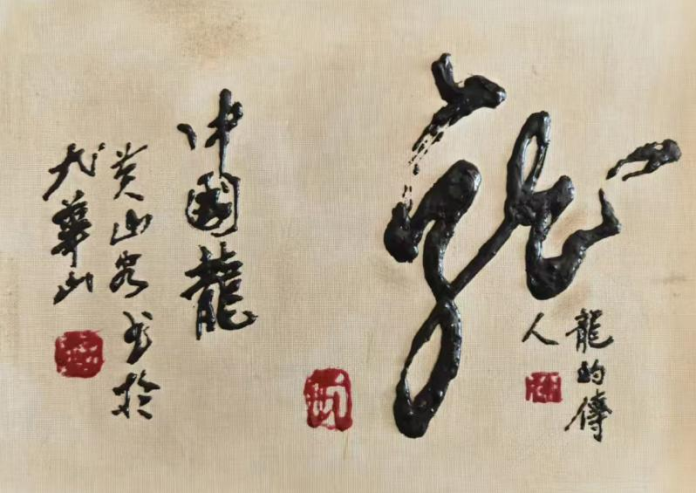 龍
龍的傳
人
中國龍
黄山客书於
九華山